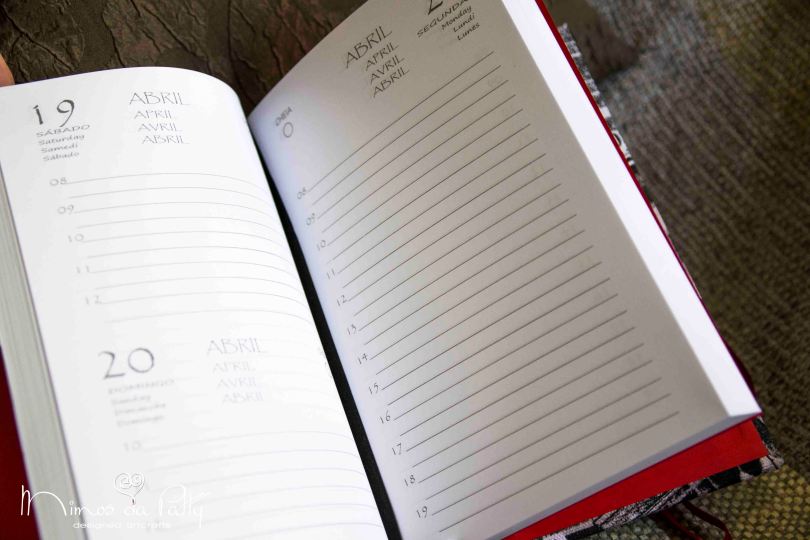 19
SÁBADO
Saturday
Samedi
Sábado
ABRIL
APRIL
AVRIL
ABRIL
08
09
10
11
12
20
DOMINGO
Sunday
Dimanche
Domingo
ABRIL
APRIL
AVRIL
ABRIL
10
ABRIL
APRIL
AVRIL
ABRIL
SEGUNDA
Monday
Lundi
Lunes
CHEIA
08
09
10
11
12
13
14
15
16
17
18
19
Mimos da Patty
designed artcrafts